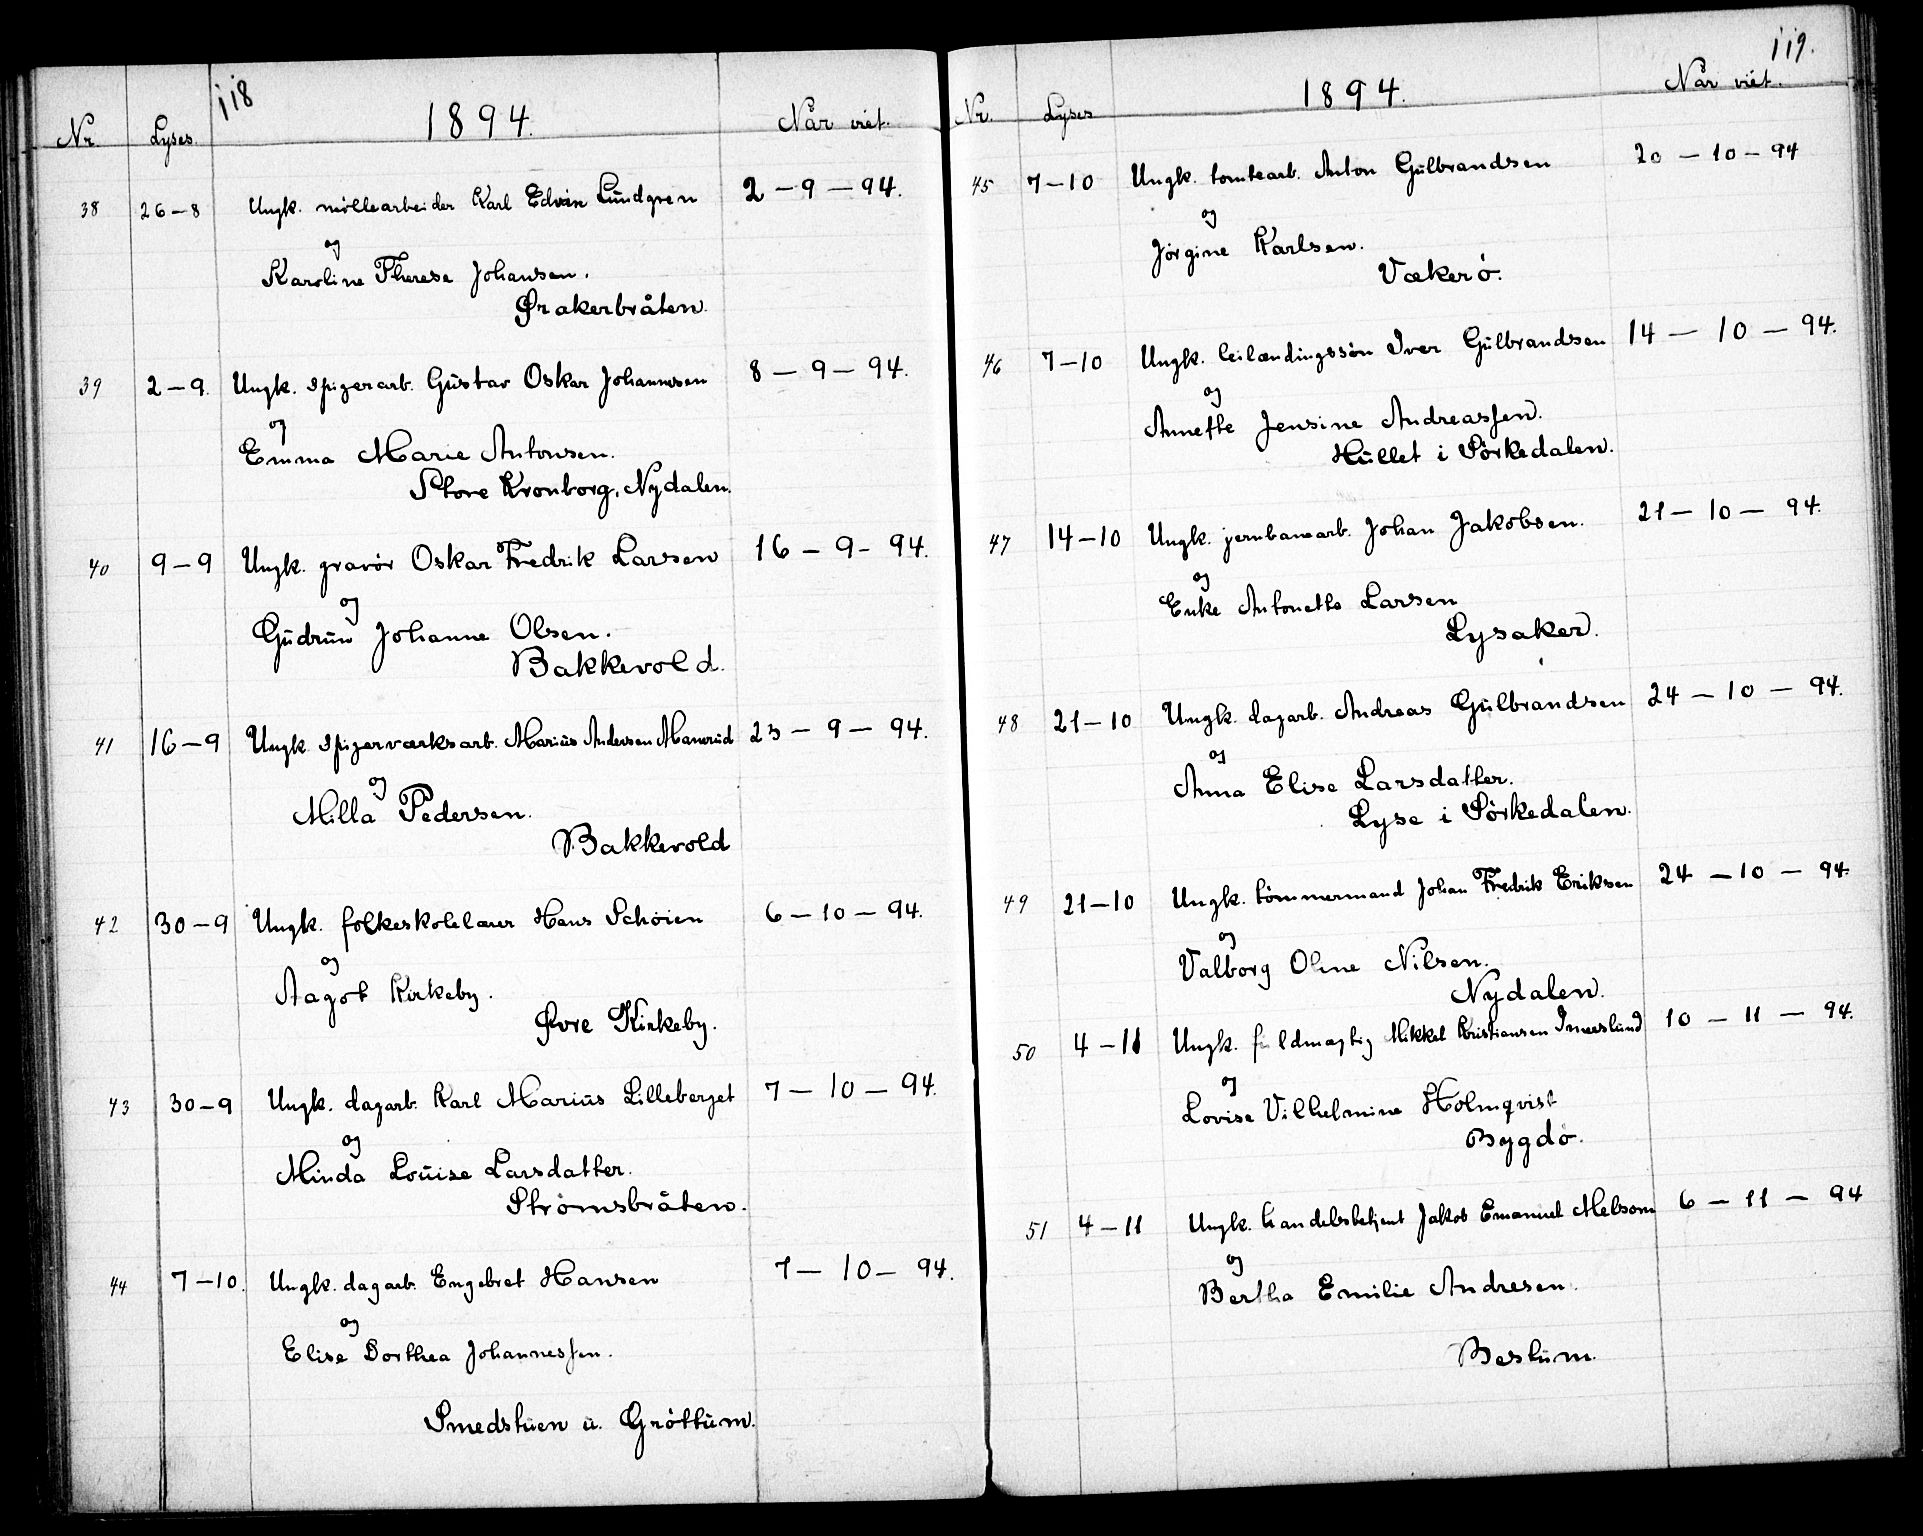 118
Nr. Lyses. 1894. Når viet.
38 26-8 Ungk. möllearbeider Karl Edvin Lundgren 2-9-94.
og
Karoline Therese Johansen.
Örakerbråten.
39 2-9. Ungk. spigerarb. Gustav Oskar Johannesen 8-9-94.
og
Emma Marie Antonsen.
Store Kronborg, Nydalen.
40 9-9 Ungk. gravör Oskar Fredrik Larsen 16-9-94.
og
Gudrun Johanne Olsen.
Bakkevold.
41 16-9 Ungk. spigerværksarb. Marius Andersen Manerud 23-9-94.
og
Milla Pedersen.
Bakkevold
42 30-9 Ungk. folkeskolelærer Hans Schöien 6-10-94.
og
Aagot Kirkeby.
Övre Kirkeby.
43 30-9 Ungk. dagarb. Karl Marius Lilleberget 7-10-94.
og
Minda Louise Larsdatter.
Strömsbråten.
44 7-10. Ungk. dagarb. Engebret Hansen 7-10-94.
og
Elise Dorthea Johannessen.
Smedstuen u. Gröttum.
119.
Nr. Lyses 1894. Når viet.
45 7-10 Ungk. tomtearb. Anton Gulbrandsen 20-10-94
og
Jörgine Karlsen.
Vækerö.
46 7-10 Ungk. leilændingssön Iver Gulbrandsen 14-10-94.
og
Annette Jensine Andreassen.
Hullet i Sörkedalen.
47 14-10 Ungk. jernbanearb. Johan Jakobsen. 21-10-94.
og
Enke Antonette Larsen
Lysaker.
48 21-10 Ungk. dagarb. Andreas Gulbrandsen 24-10-94.
og
Anna Elise Larsdatter.
Lyse i Sörkedalen.
49 21-10 Ungk. tömmermand Johan Fredrik Eriksen 24-10-94.
og
Valborg Oline Nilsen.
Nydalen.
50 4-11 Ungk. fuldmægtig Mikkel Kristiansen Imerslund 10-11-94.
og
Lovise Vilhelmine Holmqvist
Bygdö.
51 4-11 Ungk. handelsbetjent Jakob Emanuel Melsom 6-11-94
og
Bertha Emilie Andresen.
Bestum.